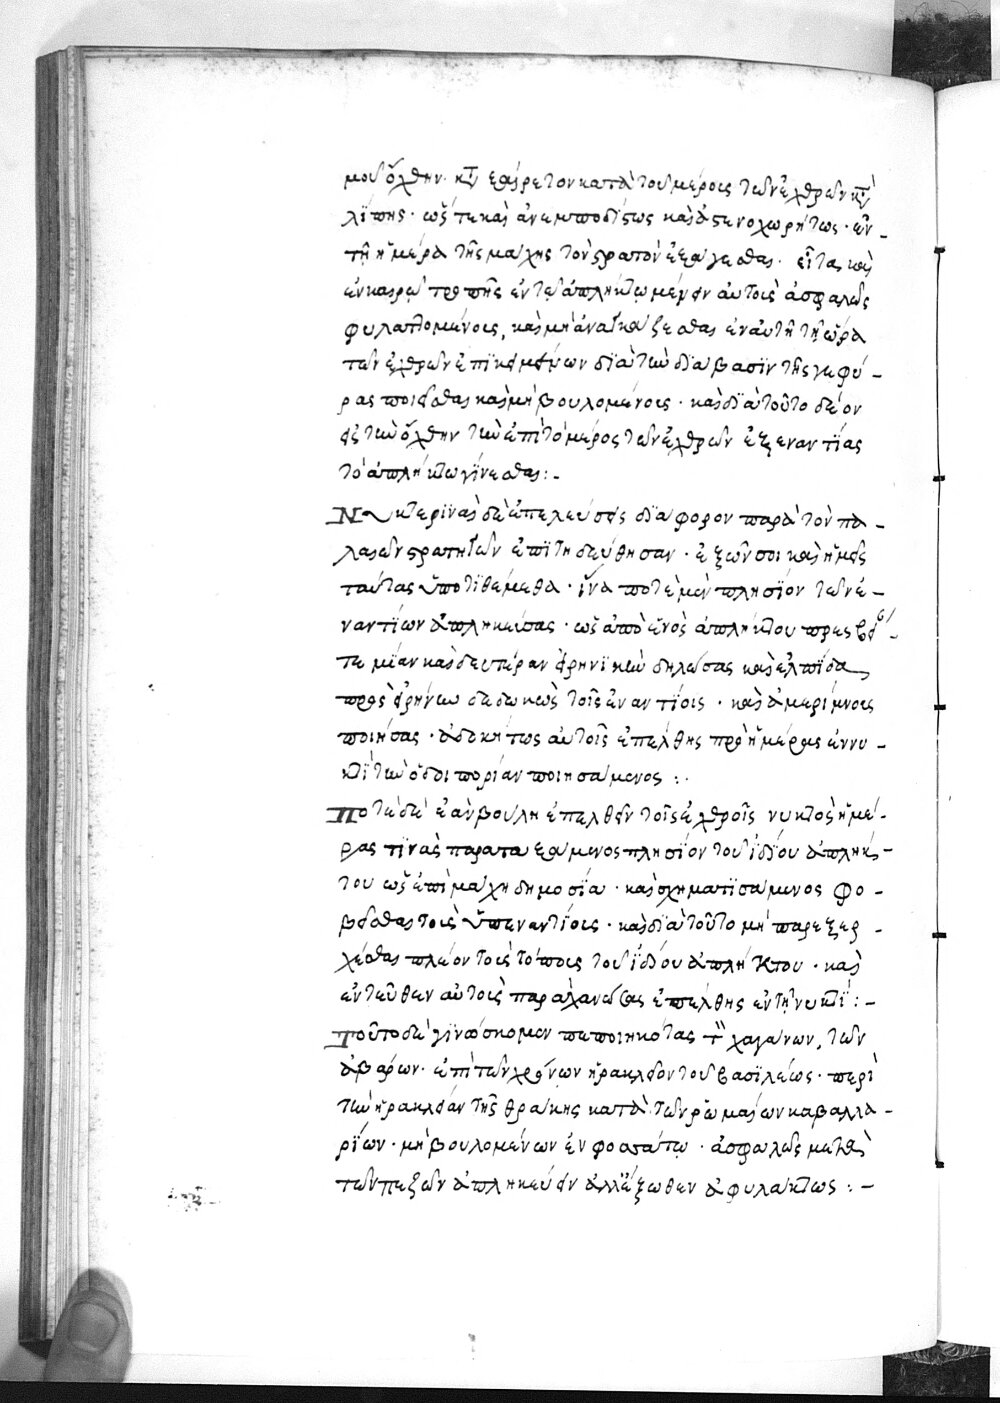 μου ὄχθην· καὶ ἐξαίρετον κατὰ τοῦ μέρους τῶν ἐχθρῶν κατα
λίπῃς· ὥστε καὶ ἀνεμποδίστως καὶ ἀστενοχωρήτως· ἐν
τῇ ἡμέρᾳ τῆς μάχης τὸν στρατὸν ἐξάγεσθαι· εἶτα καὶ
ἐν καιρῷ τροπῆς ἐν τῷ ἀπλήκτῳ μένειν αὐτοὺς ἀσφαλῶς
φυλαττομένους, καὶ μὴ ἀναγκάζεσθαι ἐν αὐτῇ τῇ ὥρᾳ
τῶν ἐχθρῶν ἐπικειμένων διὰ τὴν διάβασιν τῆς γεφύ-
ρας ποιεῖσθαι καὶ μὴ βουλομένους· καὶ διὰ τοῦτο δέον
εἰς τὴν ὄχθην τὴν ἐπὶ τὸ μέρος τῶν ἐχθρῶν ἐξεναντίας
τὸ ἄπληκτον γίνεσθαι:-
Νυκτερινὰς δὲ ἐπελεύσεις διαφόρον παρὰ τὸν πα-
λαιῶν στρατηγῶν ἐπιτηδεύθησαν· ἐξ ὧν σοι καὶ ἡμεῖς
ταύτας ὑποτιθέμεθα· ἵνα ποτὲ μὲν πλησίον τῶν ἐ-
ναντίων ἀπληκεύσας· ὡς ἀπὸ ἑνὸς ἀπλήκτου πρεσβεί-
αν τε μίαν καὶ δευτέραν εἰρηνικὴν δηλώσας καὶ ἐλπίδα
πρὸς εἰρήνην δεδωκὼς τοῖς ἐναντίοις· καὶ ἀμερίμνους
ποιήσας· ἀδοκήτως αὐτοῖς ἐπέλθῃς πρὸ ἡμέρας ἐννυ-
κτὶ τὴν ὁδοιπορίαν ποιησάμενος:·
Ποτὲ δὲ ἐὰν βούλῃ ἐπελθεῖν τοῖς ἐχθροῖς νυκτὸς ἡμέ-
ρας τινὰς παραταξάμενος πλησίον τοῦ ἰδίου ἀπλήκ-
του ὡς ἐπὶ μάχῃ δημοσίᾳ· καὶ σχηματισάμενος φο-
βεῖσθαι τοὺς ὑπεναντίους· καὶ διὰ τοῦτο μὴ παρεξερ-
χέσθαι πλέον τοὺς τόπους τοῦ ἰδίου ἀπλήκτου· καὶ
ἐντεῦθεν αὐτοὺς παραχανώσας ἐπέλθῃς ἐν τῇ νυκτί:-
Τοῦτο δὲ γινώσκομεν πεποιηκότας τὸν χαγάνων, τῶν
ἀβάρων· ἐπὶ τῶν χρόνων ἡρακλείου τοῦ βασιλέως· περὶ
τὴν ἡράκλειαν τῆς θράκης κατὰ τῶν ῥωμαίων καβαλλα-
ρίων· μὴ βουλομένων ἐν φοσσάτῳ· ἀσφαλῶς μετὰ
τῶν πεζῶν ἀπληκεύειν ἀλλ' ἔξωθεν ἀφυλάκτως:-